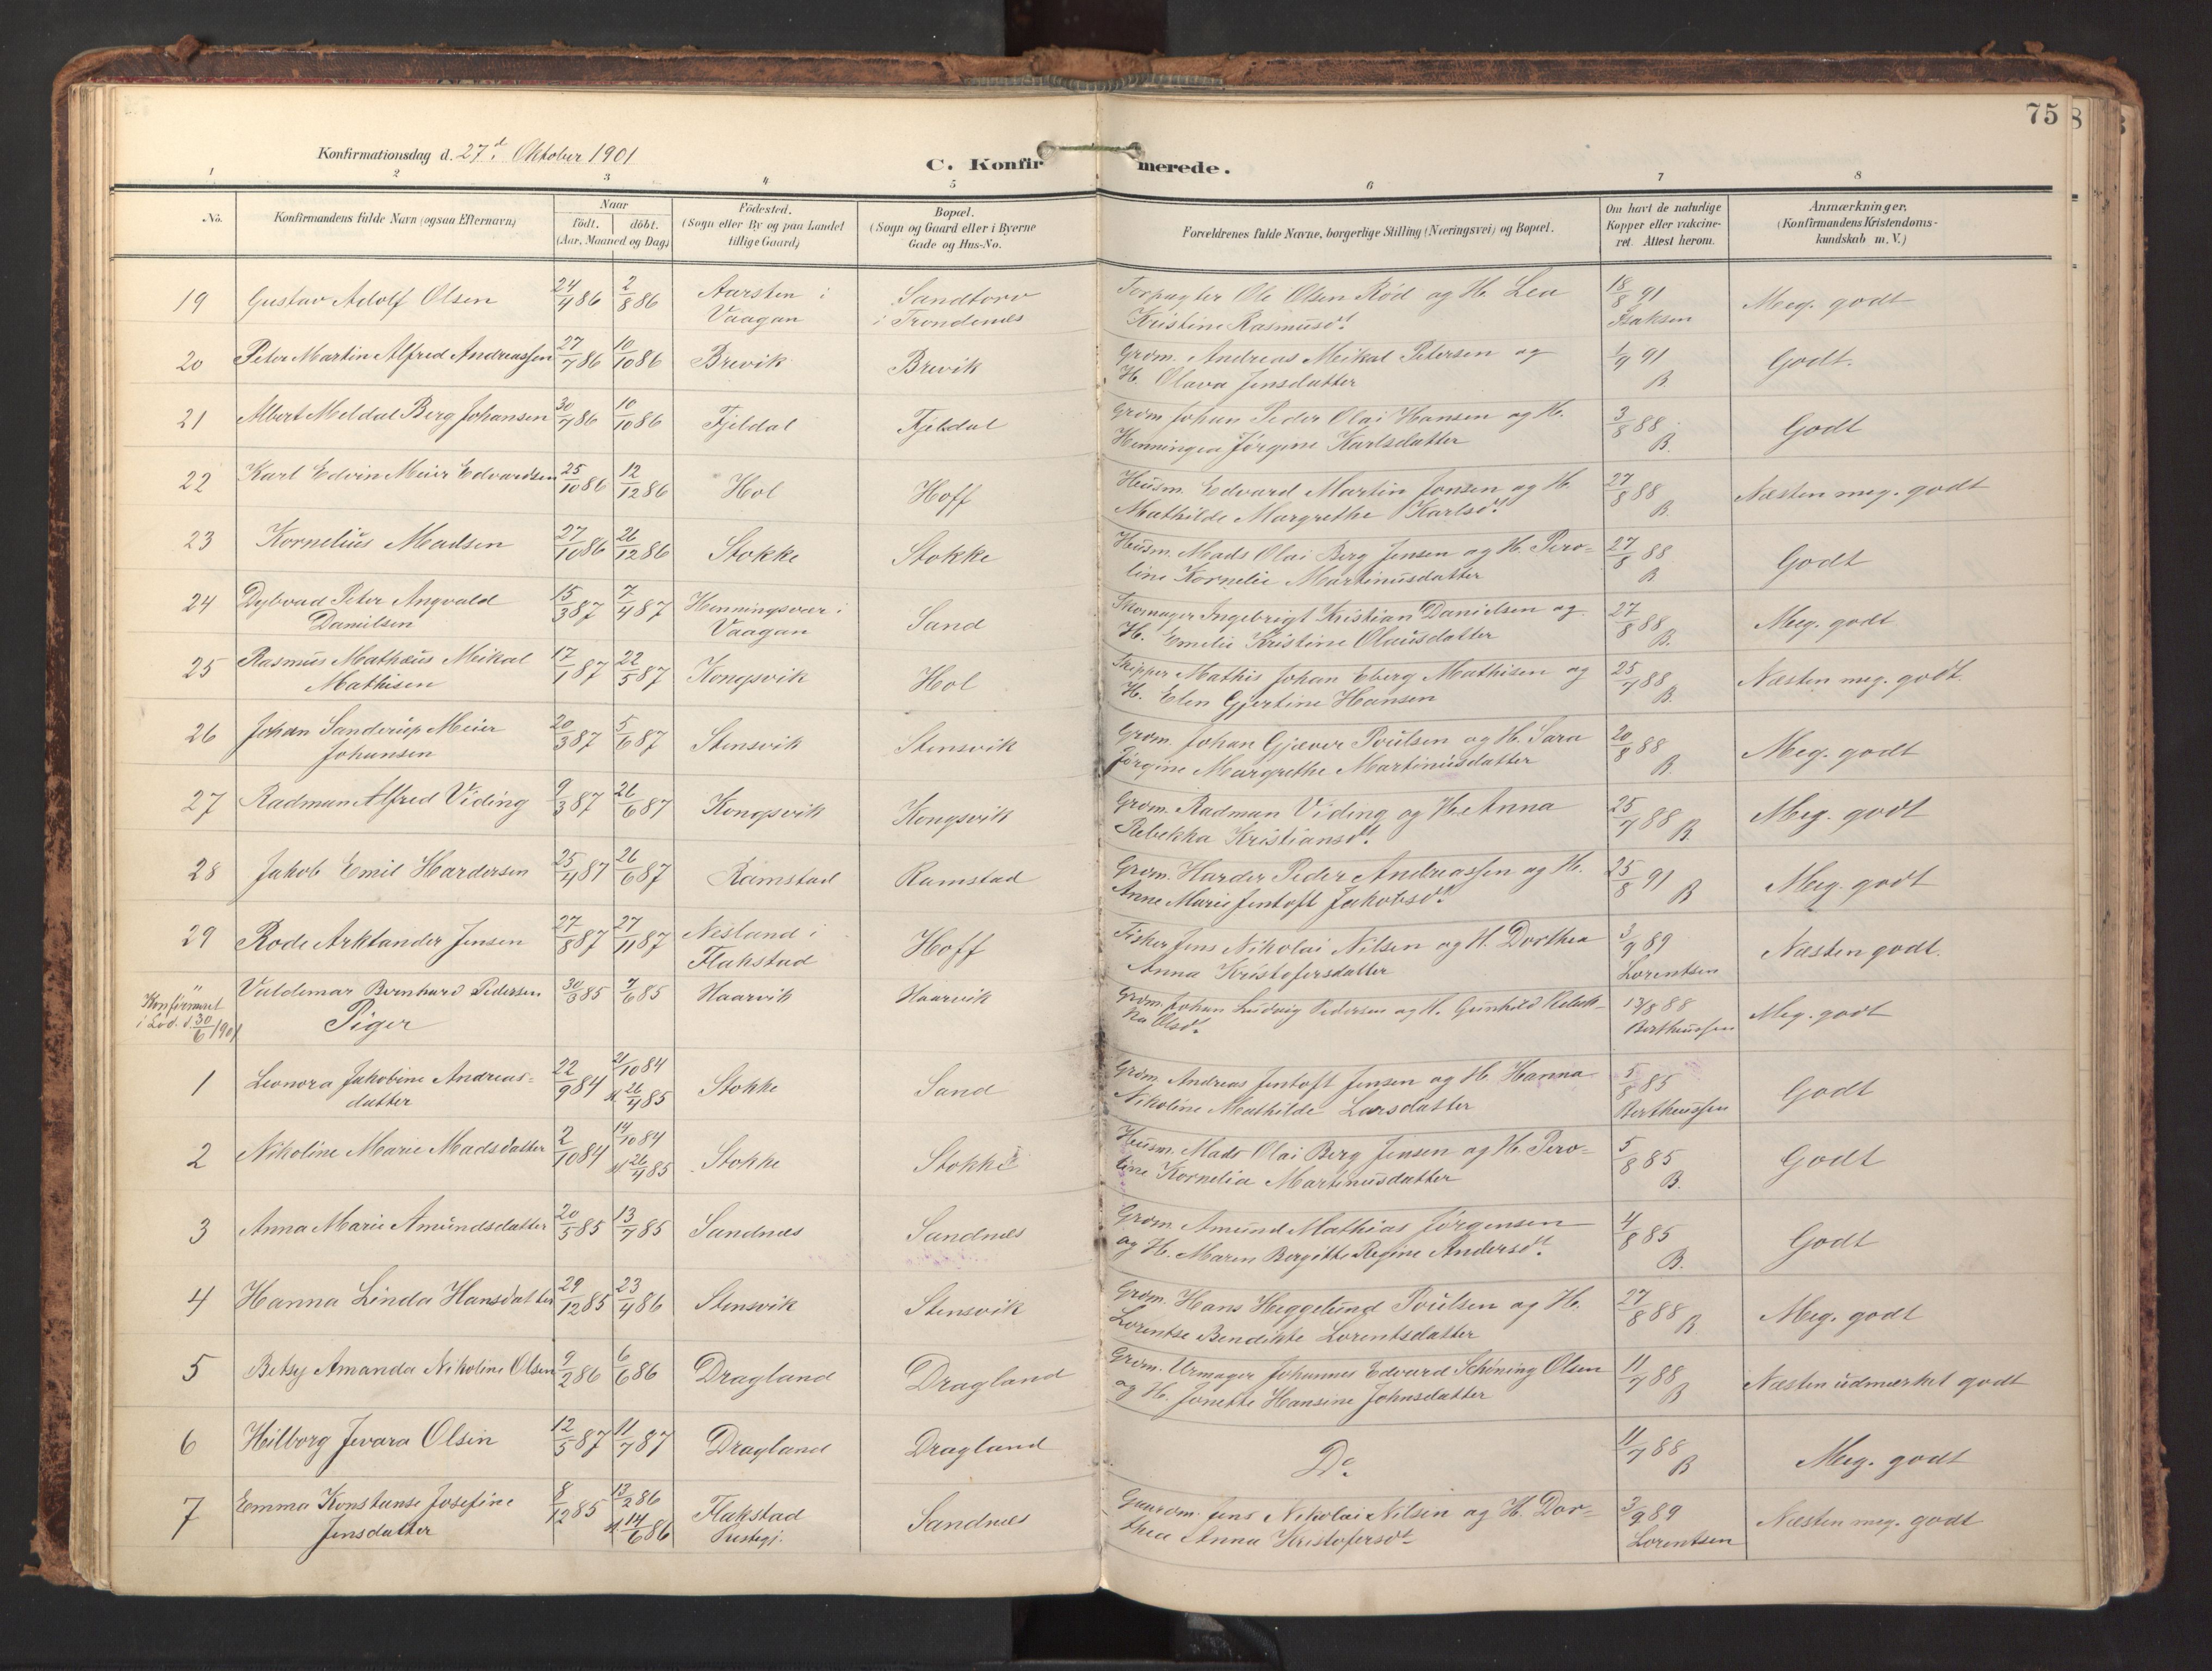 75
Konfirmationsdag d. 27d. Oktober 1901
C. Konfirmerede.
1 2 3 4 5 6 7 8
No. Konfirmandens fulde Navn (ogsaa Efternavn) Naar født. døbt. (Aar, Maaned og Dag) Fødested. (Sogn eller By og paa Landet tillige Gaard) Bopæl. (Sogn og Gaard eller i Byerne Gade og Hus-No. Forældrenes fulde Navne, borgerlige Stilling (Næringsvei) og Bopæl. Om havt de naturlige Kopper eller vakcineret. Attest herom. Anmærkninger. (Konfirmandens Kristendomskundskab m. V.)
19 Gustav Adolf Olsen 24/4 86 2/8 86 Aarsten i Sandtorv Forpagter Ole Olsen Rød og H. Lea 18/8 91 Meg. godt
Vaagan i Trondenæs Kristine Rasmusdt. Isaksen
20 Peter Martin Alfred Andreassen 27/7 86 10/10 86 Brevik Brevik Grdm. Andreas Meikal Petersen og 1/9 91 Godt.
H. Olava Jensdatter B
21 Albert Meldal Berg Johansen 30/7 86 10/10 86 Fjeldal Fjeldal Grdm. Johan Peder Olai Hansen og H. 3/8 88 Godt
Henningea Jørgine Karlsdatter B.
22 Karl Edvin Meier Edvardsen 25/10 86 12/12 86 Hol Hoff Husm. Edvard Martin Jonsen og H. 27/8 88 Næsten meg. godt
Mathilde Margrethe Karlsdt. B.
23 Kornelius Madsen 27/10 86 26/12 86 Stokke Stokke Husm. Mads Olai Berg Jensen og H. Pero- 27/8 88 Godt
line Kornelie Martinusdatter B
24 Dybvad Peter Angvald 15/3 87 7/4 87 Henningsvær i Sand Skomager Ingebrigt Kristian Danielsen og 27/8 88 Meg. godt
Danielsen Vaagan H. Emelie Kristine Olausdatter B.
25 Rasmus Mathæus Meikal 17/1 87 22/5 87 Kongsvik Hol Skipper Mathis Johan Eberg Mathisen og 25/7 88 Næsten meg. godt.
Mathisen H. Elen Gjertine Hansen B.
26 Johan Sanderup Meier 20/3 87 5/6 87 Stensvik Stensvik Grdm. Johan Gjæver Poulsen og H. Sara 20/8 88 Meg. godt
Johansen Jørgine Margrethe Martinusdatter B.
27 Radman Alfred Viding 9/3 87 26/6 87 Kongsvik Kongsvik Grdm. Radman Viding og H. Anna 25/7 88 Meg. godt
Rebekka Kristiansdt. B.
28 Jakob Emil Hardersen 25/4 87 26/6 87 Ramstad Ramstad Grdm. Harder Peder Andreassen og H. 25/8 91 Meg. godt
Anne Marie Jentoft Jakobsdt. B
29 Rode Arktander Jensen 27/8 87 27/11 87 Nesland i Hoff Fisker Jens Nikolai Nilsen og H. Dorthea 3/9 89 Næsten godt.
Flakstad Anna Kristofersdatter Lorentsen
" Valdemar Bernhard Pedersen 30/3 85 7/6 85 Haarvik Haarvik Grdm. Johan Ludvig Pedersen og H. Gunhild Rebek- 13/8 88 Meg. godt
Konfirmeret i Lød. d. 30/6 1901 ka Olsdt. Bertheussen
Piger
1 Leonora Jakobine Andreas- 22/9 84 21/10 84 Stokke Sand Grdm. Andreas Jentoft Jensen og H. Hanna 5/8 85 Godt
datter st. 26/4 85 Nikoline Mathilde Larsdatter Bertheussen
2 Nikoline Marie Madsdatter 2/10 84 14/10 84 Stokke Stokke Husm. Mads Olai Berg Jensen og H. Pero- 5/8 85 Godt
st. 26/4 85 line Kornelia Martinusdatter B.
3 Anna Marie Amundsdatter 20/5 85 13/7 85 Sandnæs Sandnæs Grdm. Amund Mathias Jørgensen 4/8 85 Godt
og H. Maren Bergitte Regine Andersdt. B.
4 Hanna Linda Hansdatter 29/12 85 23/4 86 Stensvik Stensvik Grdm. Hans Heggelund Poulsen og H. 27/8 88 Meg. godt
Lorentse Bendikte Lorentsdatter B.
5 Betsy Amanda Nikoline Olsen 9/2 86 6/6 86 Dragland Dragland Grdm. Urmager Johannes Edvard Schöning Olsen 11/7 88 Næsten udmærket godt
og H. Jonette Hansine Johnsdatter B
6 Hilborg Jevara Olsen 12/5 87 11/7 87 Dragland Dragland Do. 11/7 88 Meg. godt
B
7 Emma Konstanse Josefine 8/12 85 13/2 86 Flakstad Sandnæs Gaardm. Jens Nikolai Nilsen og H. Dor- 3/9 89 Næsten meg. godt
Jensdatter st. 14/6 86 Prestegj. thea Anna Kristofersdt. Lorentsen